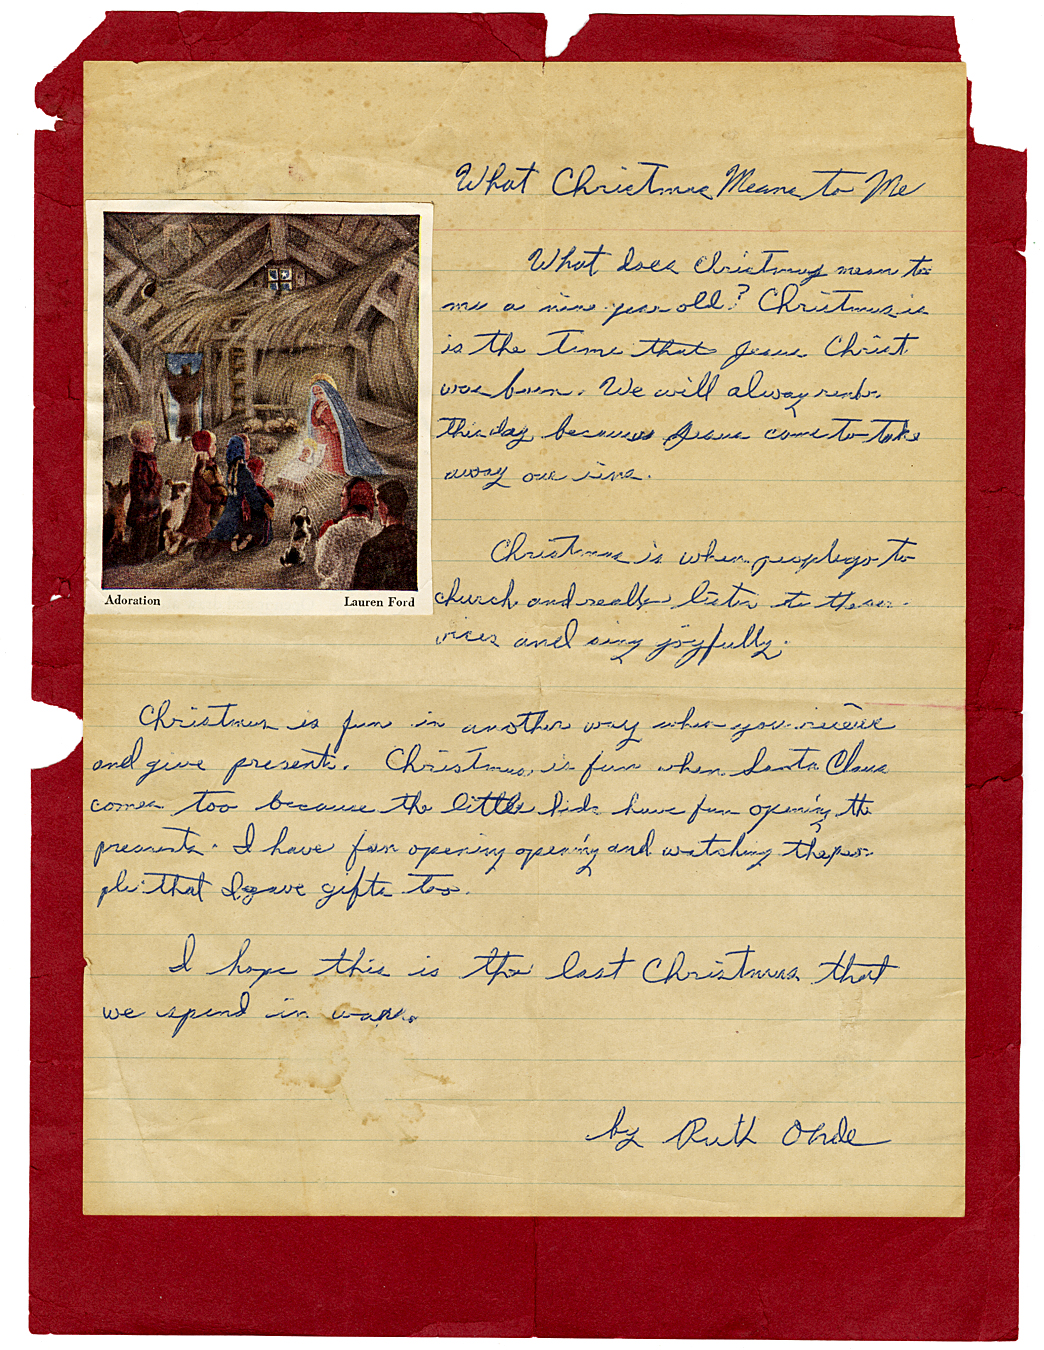 What Christmas Means to Me
What does Christmas mean to
me a nine year old? Christmas is
is the time that Jesus Christ
was born. We will alway
this day because Jesus came to take
away our sins.
Christmas is when people go to
church and really listen to the ser-
vices and sing joyfully.
Adoration Lauren Ford
Christmas is fun in another way when you recieve
and give present. Christmas is fun when Santa Claus
comes too because the little kids have fun opening the
presents. I have fun opening opening and watching the peo-
ple that I gave gifts too.
I hope this is the last Christmas that
we spend in war.
by Ruth Ohde